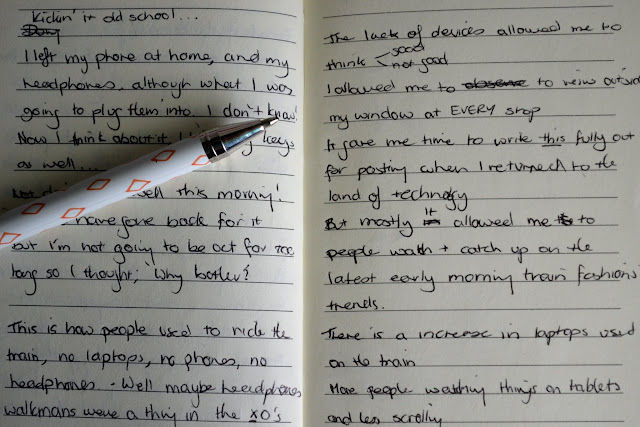 Kickin' it old school...
I left my phone at home, and my
headphones, although what I was
going to plug them into. I don't know!
Now I think about it I keys
as well...
well this morning!
have gone back for it
but I'm not going to be out for too
long so I thought; 'Why bother?'
This is how people used to ride the
train, no laptops, no phones, no
headphones - Well maybe headphones
walkmans were a thing in the 80's
The lack of devices allowed me to
think good
not good
I allowed me to to view outside
my window at EVERY stop
It gave me time to write this fully out
for posting when I returned to the
land of technology
But mostly it allowed me to
people watch + catch up on the
latest early morning train fashions
trends.
There is a increase in laptops used
on the train
More people watching things on tablets
and less scrolling